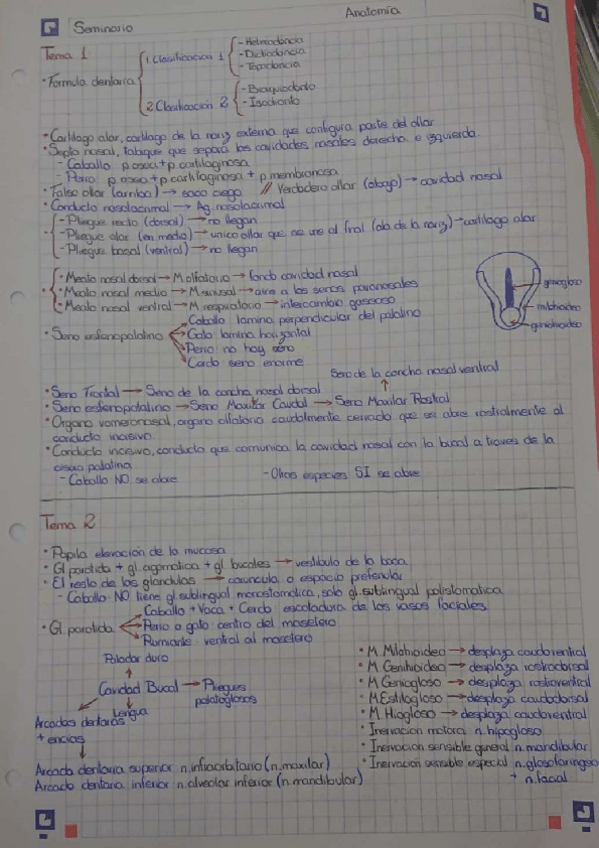 Anatomía
Seminario
Tema 1
• Formula dentaria
1. Clasificacion 1
- Heterodoncia
- Dictiodoncia
- Tecodoncia
2. Clasificación 2
- Braquiodonto
- Isodonto
• Cartilago alar, cartilago de la nariz externa que configura parte del ollar
• Septo nasal, tabique que separa las cavidades nasales derecha e izquierda.
- Caballo p. osea + p. cartilaginosa
- Perro p. osea + p. cartilaginosa + p. membranosa
• Falso ollar (arriba) → saco ciego // Verdadero ollar (abajo) → cavidad nasal
• Conducto nasolacrimal → Ag. nasolacrimal
- Pliegue recto (dorsal) → no llegan
- Pliegue alar (en medio) → unico ollar que se une al final (ala de la nariz) → cartilago alar
- Pliegue basal (ventral) → no llegan
• Meato nasal dorsal → M. olfatorio → fondo cavidad nasal
• Meato nasal medio → M. sinusal → aire a los senos paranasales
• Meato nasal ventral → M. respiratorio → intercambio gaseoso
geniogloso
milohioideo
geniohioideo
• Seno esfenopalatino
Caballo lamina perpendicular del palatino
Gato lamina horizontal
Perro no hay seno
Cerdo seno enorme
Seno de la concha nasal ventral
• Seno Frontal → Seno de la concha nasal dorsal
• Seno esfenopalatino → Seno Maxilar Caudal → Seno Maxilar Rostral
• Organo vomeronasal, organo olfatorio caudalmente cerrado que se abre rostralmente al
conducto incisivo
• Conducto incisivo, conducto que comunica la cavidad nasal con la bucal a traves de la
fisura palatina
- Caballo NO se abre
- Otras especies SI se abre
Tema 2
• Papila elevación de la mucosa
• Gl. parotida + gl. cigomatica + gl. bucales → vestibulo de la boca
• El resto de las glandulas → caruncula o espacio prefrenular
- Caballo NO tiene gl. sublingual monostomatica, solo gl. sublingual polistomatica
• Gl. parotida
Caballo + Vaca + Cerdo escotadura de los vasos faciales
Perro o gato centro del masetero
Rumiante ventral al masetero
Paladar duro
Cavidad Bucal → Pliegues
palatoglosos
Lengua
Arcadas dentarias
+ encias
Arcada dentaria superior n. infraorbitario (n. maxilar)
Arcada dentaria inferior n. alveolar inferior (n. mandibular)
• M. Milohioideo → desplaza caudoventral
• M. Genihioideo → desplaza rostrodorsal
• M. Geniogloso → desplaza rostroventral
• M. Estilogloso → desplaza caudodorsal
• M. Hiogloso → desplaza caudoventral
• Inervacion motora n. hipogloso
• Inervacion sensible general n. mandibular
• Inervacion sensible especial n. glosofaringeo
+ n. facial